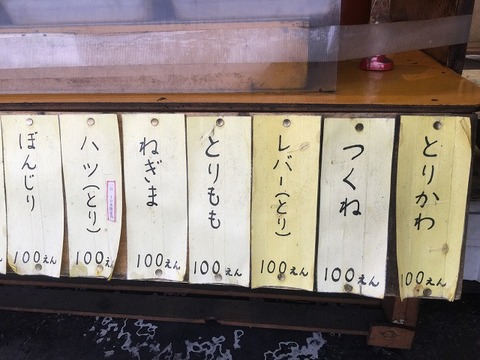 とりかわ
100えん
つくね
100えん
レバー(とり)
100えん
とりもも
100えん
ねぎま
100えん
ハツ(とり)
100えん
ぼんじり
100えん